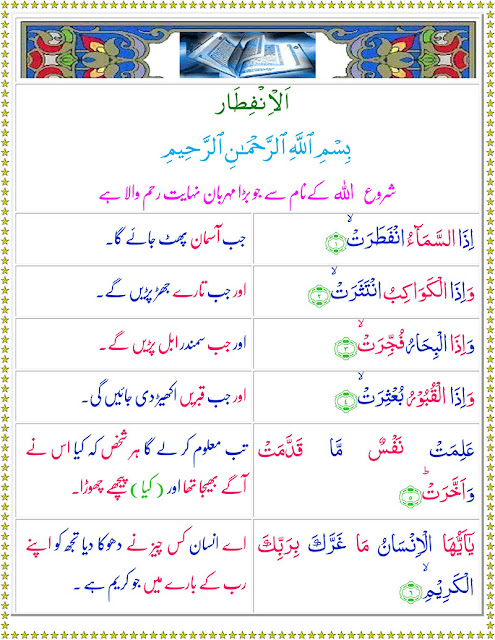 اَلْاِنْفِطَار
بِسْمِ ٱللَّهِ ٱلرَّحْمَـٰنِ ٱلرَّحِيمِ
شروع الله کےنام سے جو بڑا مہربان نہایت رحم والا ہے
اِذَا السَّمَآءُ انْفَطَرَتْۙ ﴿۱﴾
جب آسمان پھٹ جائے گا۔
وَاِذَا الْكَوَاكِبُ انْتَثَرَتْۙ ﴿۲﴾
اور جب تارے جھڑ پڑیں گے۔
وَاِذَا الْبِحَارُ فُجِّرَتْۙ ﴿۳﴾
اور جب سمندر ابل پڑیں گے۔
وَاِذَا الْقُبُوْرُ بُعْثِرَتْۙ ﴿۴﴾
اور جب قبریں اکھیڑ دی جائیں گی۔
عَلِمَتْ نَفْسٌ مَّا قَدَّمَتْ
وَاَخَّرَتْؕ ﴿۵﴾
تب معلوم کرلے گا ہر شخص کہ کیا اس نے
آگے بھیجا تھا اور ( کیا ) پیچھے چھوڑا۔
يٰۤاَيُّهَا الْاِنْسَانُ مَا غَرَّكَ بِرَبِّكَ
الْكَرِيْمِۙ ﴿۶﴾
اے انسان کس چیز نے دھوکا دیا تجھ کو اپنے
رب کے بارے میں جو کریم ہے ۔